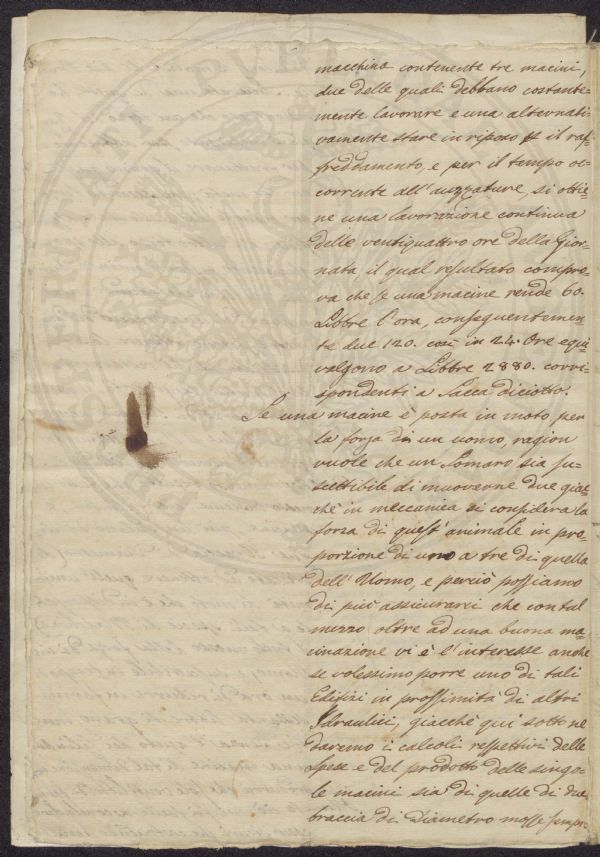 macchina contenente tre macini,
due delle quali debbano costante=
mente lavorare e una alternati=
vamente stare in riposo p il raf=
freddamento, e per il tempo oc=
corrente all'auzzature, si ottie=
ne una lavorazione continua
delle ventiquattro ore della Gior=
nata, il qual resultato compro=
va che se una macine rende 60.
Libbre l'ora, conseguentemen=
te due 120. così in 24. Ore equi=
valgono a Libbre 2880. corri=
spondenti a Sacca diciotto.
Se una macine è posta in moto per
la forza di un uomo, ragion
vuole che un Somaro sia su=
scettibile di muoverne due giac=
chè in meccanica si considera la
forza di quest'animale in pro=
porzione di uno a tre di quella
dell'Uomo, e perciò possiamo
di più assicurarci che con tal
mezzo oltre ad una buona ma=
cinazione vi è l'interesse anche
se volessimo porre uno di tali
Edifizi in prossimità di altri
Idraulici, giacchè qui sotto ne
daremo i calcoli respettivi delle
Spese e del prodotto delle singo=
le macini sia di quelle di due
braccia di Diametro mosse sempre